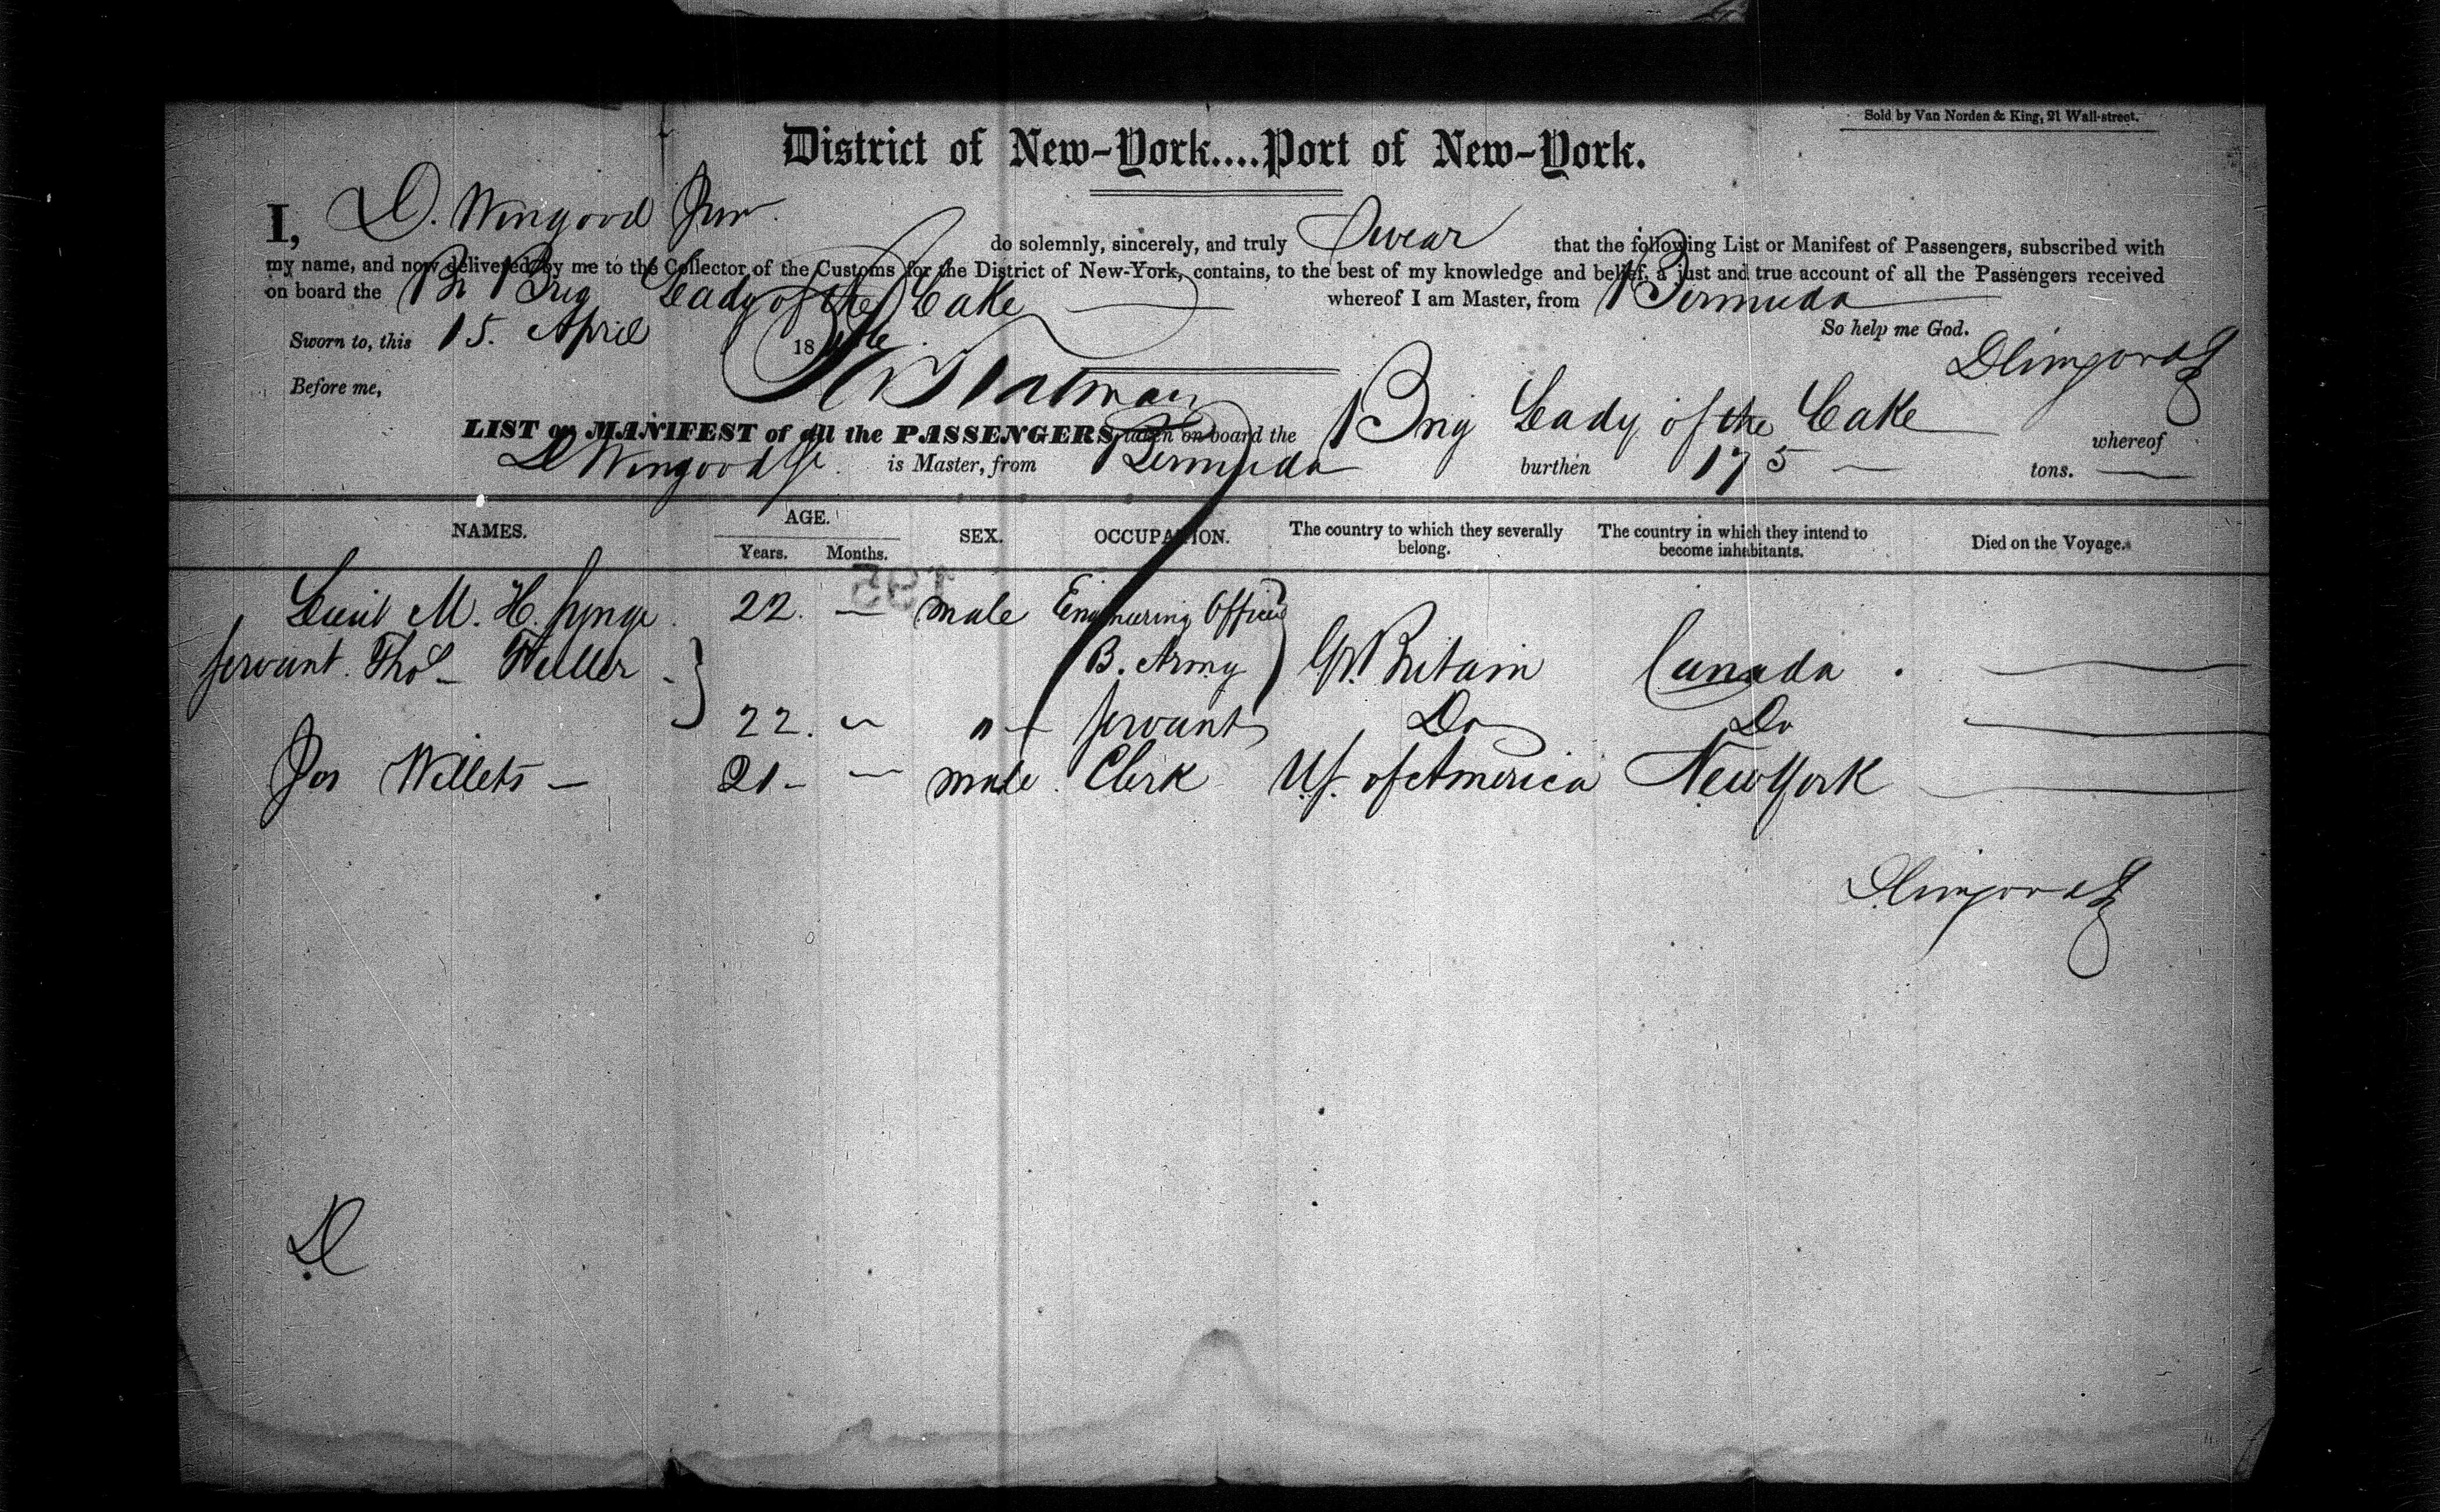 Sold by Van Norden & King, 21 Wall-street.
District of New-York....Port of New-York.
I, D. Wingood Jun. do solemnly, sincerely, and truly Swear that the following List or Manifest of Passengers, subscribed with
my name, and now delivered by me to the Collector of the Customs for the District of New-York, contains, to the best of my knowledge and belief, a just and true account of all the Passengers received
on board the Br Brig Lady of the Lake whereof I am Master, from Bermuda
So help me God.
Sworn to, this 15. April 18
Before me,
LIST or MANIFEST of all the PASSENGERS taken on board the Brig Lady of the Lake whereof
D Wingood Jr. is Master, from Bermuda burthen 175 tons.
NAMES. AGE. SEX. OCCUPATION. The country to which they severally belong. The country in which they intend to become inhabitants. Died on the Voyage.
Years. Months.
195
Lieut M. H. Synge. 22. — male Engineering Officer
Servant. Thos — Feller - B. Army Gt. Britain Canada .
22. " — Servant Do Do
Jos Willets — 21 - — male. Clerk U S. of America New York
D